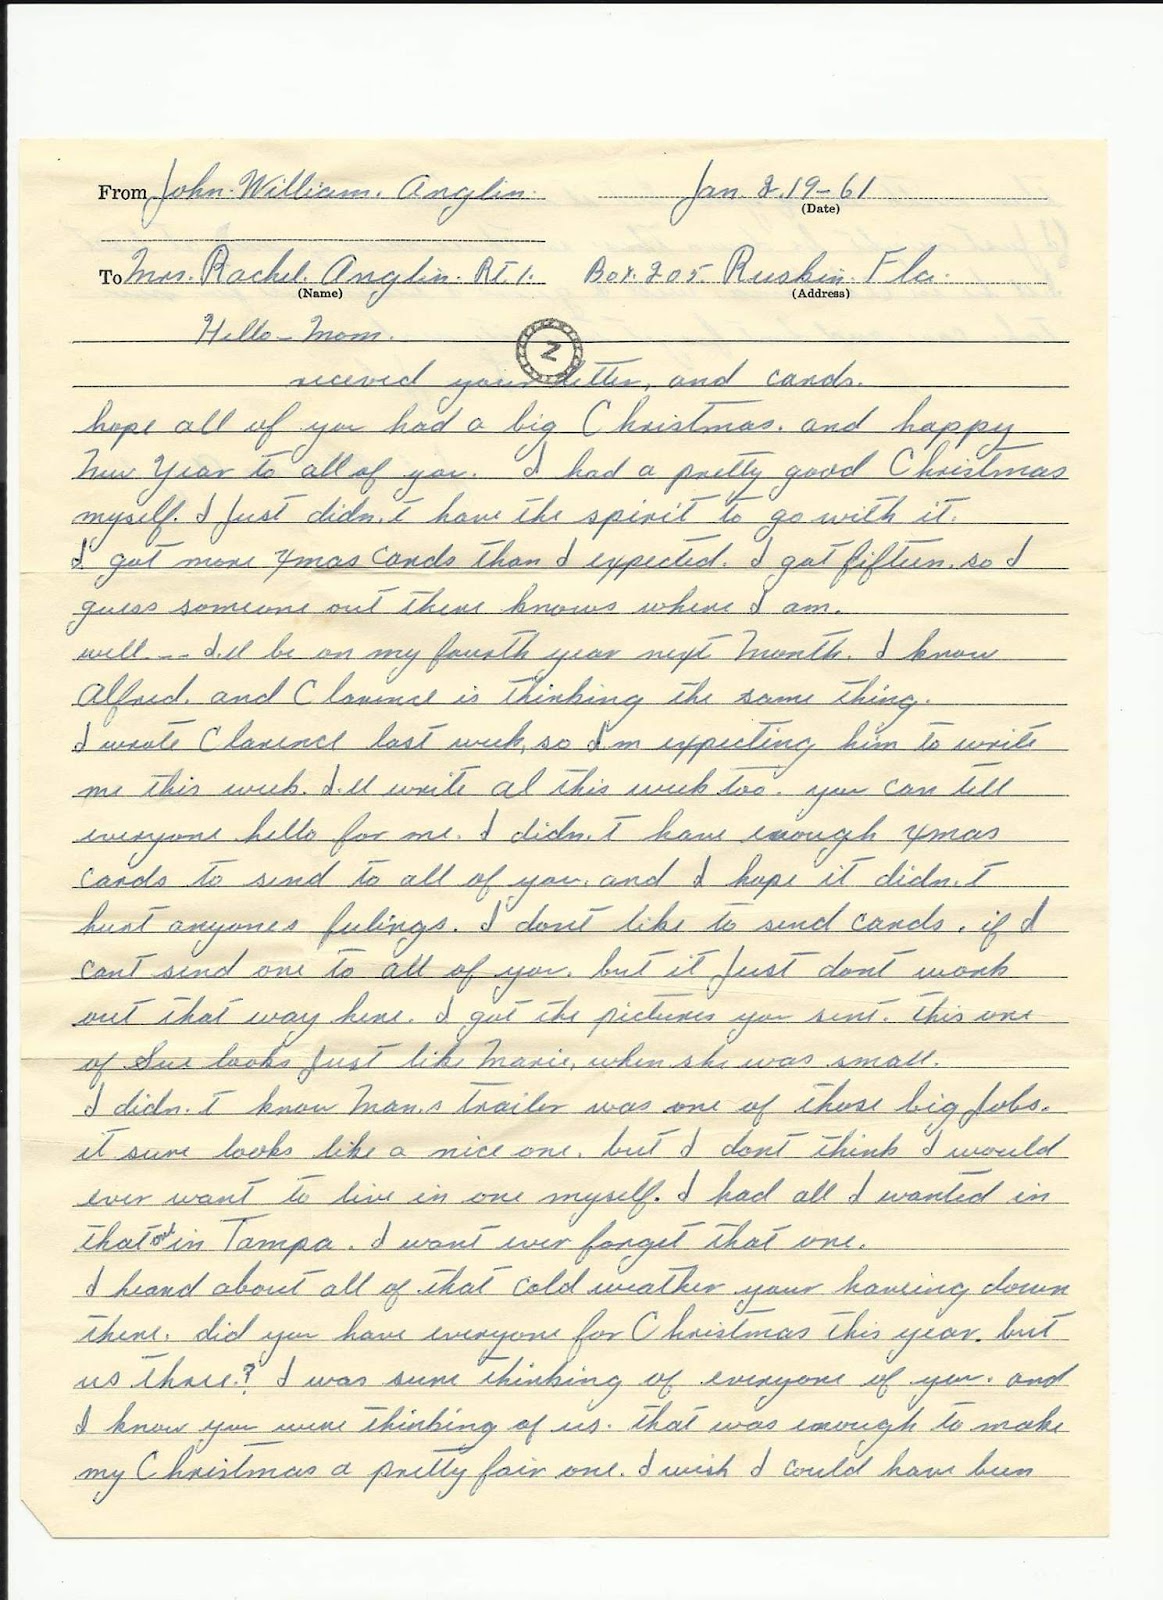 From John. William. Anglin. Jan. 2. 19-61
(Date)
To Mrs. Rachel. Anglin. Rt. 1. Box. 205. Ruskin. Fla.
(Name) (Address)
Hello - Mom.
Z
receved your letter, and cards.
hope all of you had a big Christmas. and happy
New Year to all of you. I had a pretty good Christmas
myself. I Just didn.t have the spirit to go with it.
I got more Xmas cards than I expected. I got fifteen. so I
guess someone out there knows where I am.
well -- I.ll be on my fourth year next Month. I know
Alfred. and Clarence is thinking the same thing.
I wrote Clarence last week, so I,m expecting him to write
me this week. I.ll write Al this week too. you can tell
everyone hello for me. I didn.t have enough Xmas
cards to send to all of you. and I hope it didn.t
hurt anyones feelings. I dont like to send cards. if I
cant send one to all of you. but it Just dont work
out that way here. I got the pictures you sent. this one
of Sue looks Just like Marie, when she was small.
I didn.t know Man.s trailer was one of those big Jobs.
it sure looks like a nice one. but I dont think I would
ever want to live in one myself. I had all I wanted in
that in Tampa. I wont ever forget that one.
I heard about all of that cold weather your haveing down
there. did you have everyone for Christmas this year. but
us three? I was sure thinking of everyone of you. and
I know you were thinking of us. that was enough to make
my Christmas a pretty fair one. I wish I could have been